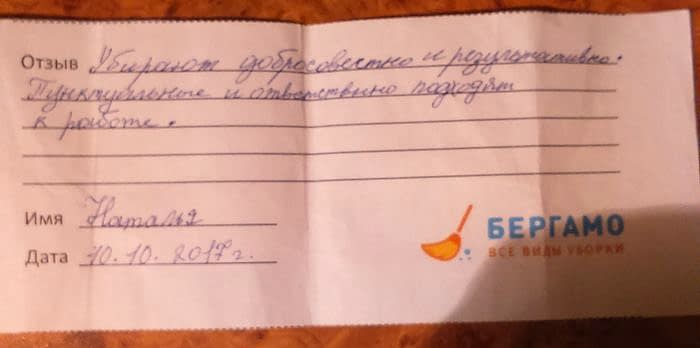 Отзыв Убирают добросовестно и результативно.
Пунктуальные и ответственно подходят
к работе.
Имя Наталья
Дата 10.10.2017г.
БЕРГАМО
ВСЕ ВИДЫ УБОРКИ